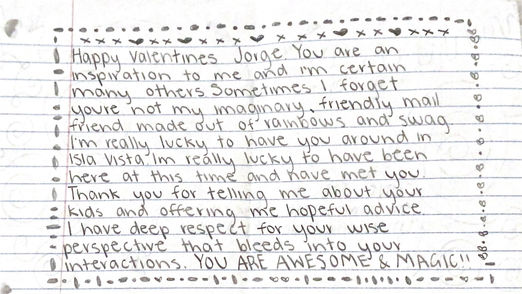 Happy Valentines Jorge. You are an
inspiration to me and i'm certain
many others Sometimes I forget
youre not my imaginary, friendly mail
friend made out of rainbows and swag.
I'm really lucky to have you around in
Isla Vista. Im really lucky to have been
here at this time and have met you.
Thank you for telling me about your
kids and offering me hopeful advice.
I have deep respect for your wise
perspective that bleeds into your
interactions. YOU ARE AWESOME & MAGIC!!